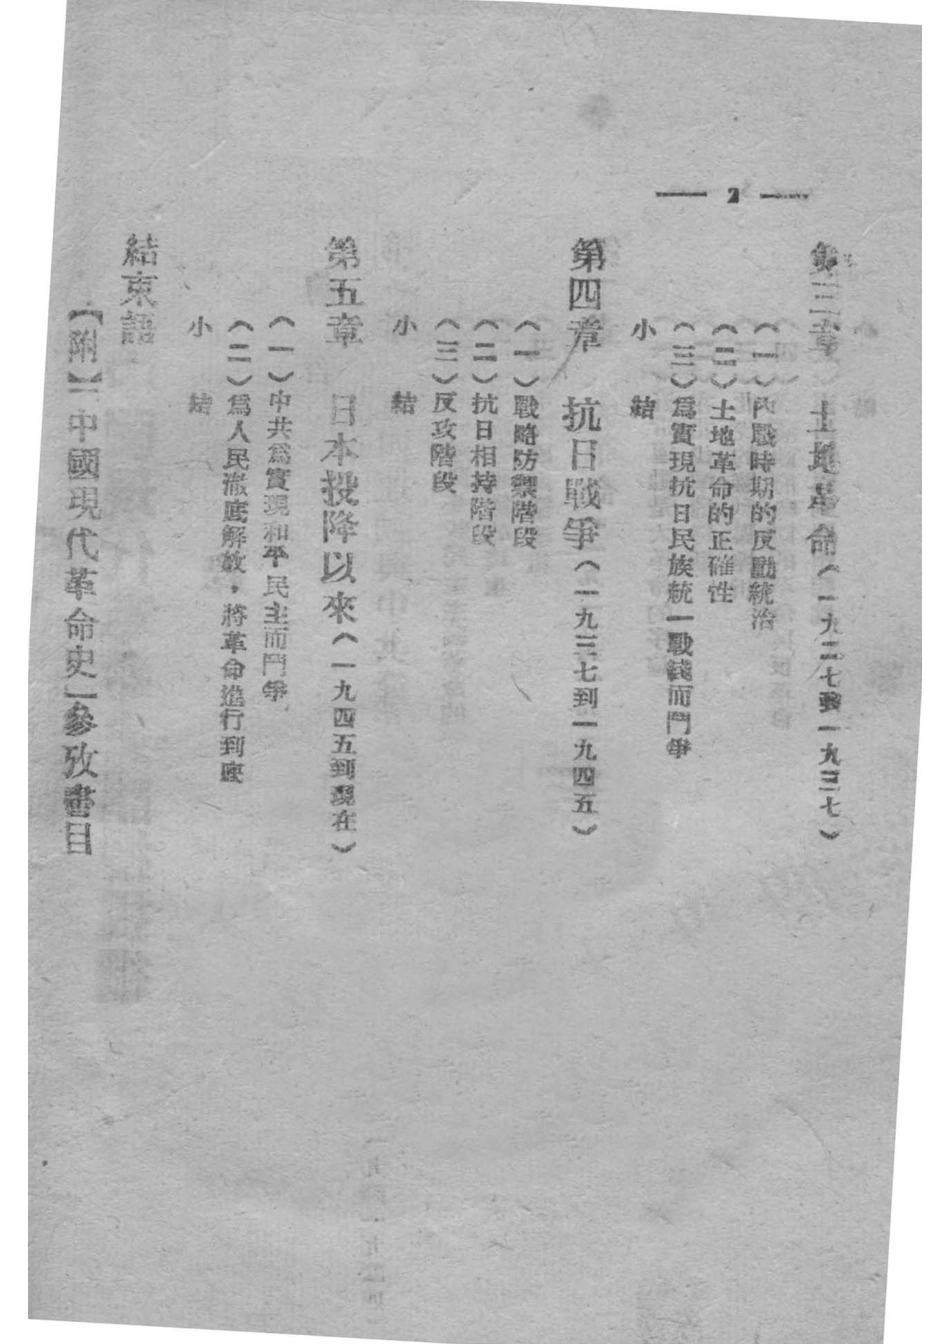 — 2 —
第三章 土地革命(一九二七到一九三七)
(一)內戰時期的反動統治
(二)土地革命的正確性
(三)爲實現抗日民族統一戰綫而鬥爭
小 結
第四章 抗日戰爭(一九三七到一九四五)
(一)戰略防禦階段
(二)抗日相持階段
(三)反攻階段
小 結
第五章 日本投降以來(一九四五到現在)
(一)中共爲實現和平民主而鬥爭
(二)爲人民澈底解放,將革命進行到底
小 結
結束語
【附】「中國現代革命史」參攷書目